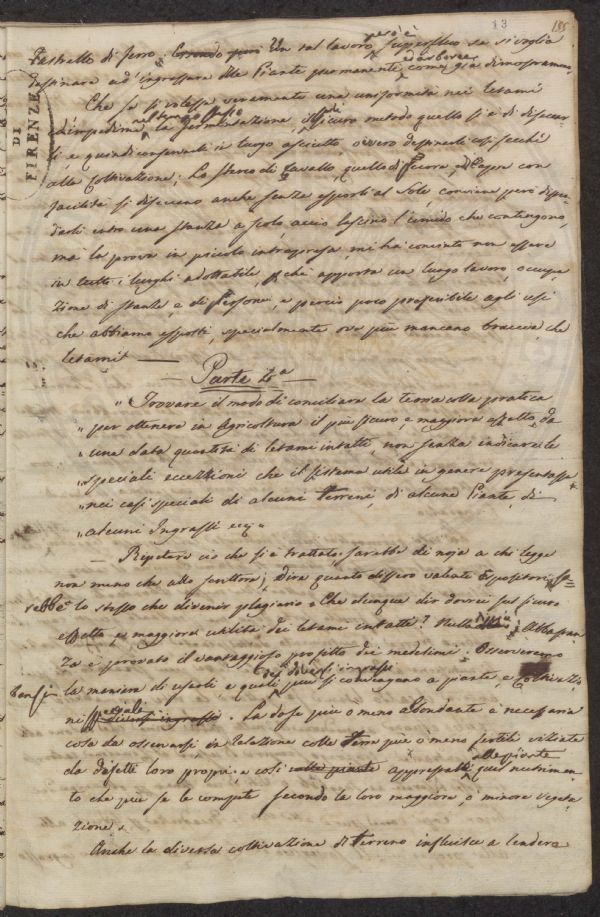 13 185
DI
FIRENZE
rastrello di ferro. Un tal lavoro però è superfluo se si voglia
ed erbacee
Che se si volesse veramente una uniformità nei letami
nel tempo stesso
ed impedirne la fermentazione, il più sicuro metodo quello si è di diseccar-
li e quindi conservarli in luogo asciutto, ovvero destinarli così secchi
alla Coltivazione; Lo sterco di Cavallo, quello di Pecora, e Capra con
facilità si diseccano anche senza esporli al Sole, conviene però depo-
darli entro una stanza a scolo, acciò lascino l'umido che contengono,
ma la prova in piccolo intrapresa, mi ha convinto non essere
in tutti i luoghi adottabile, che apporta un lungo lavoro, occupa-
zione di stanze, e di Persone, e perciò poco preferibile agli usi
che abbiamo esposti, specialmente ove più mancano braccia, che
letami —
— Parte 2.a —
„ Trovare il modo di conciliare la teoria colla pratica
„ per ottenere in Agricoltura il più sicuro, e maggiore effetto, da
„ una data quantità di letami intatti, non senza indicare le
„ speciali eccezioni che il sistema utile in genere presentasse
„ nei casi speciali di alcuni Terreni, di alcune Piante, di
„ alcuni Ingrassi ecc „
— Ripetere ciò che si è trattato, sarebbe di noja a chi legge
non meno che allo scrittore; dire quanto dissero valenti Espositori sa-
rebbe lo stesso che divenir plagiario. Che dunque dir dovrei sul sicuro
effetto, e maggiore utilità dei letami intatti? Nulla Abbastan
za è provato il vantaggioso profitto dei medesimi. Osserveremo
dei diversi ingrassi
la maniera di usarli, e quali più si convengano a piante, e Coltivazio
ni speciali diversi ingrassi. La dose più o meno abbondante è necessaria
cosa da osservarsi in relazione colle Terre più o meno fertili viziate
alle piante
da difetti loro propri e così colle piante apprestarli quel nutrimen-
to che più se le compete secondo la loro maggiore, o minore vegeta
zione.
Anche la diversa coltivazione di terreno influisce a rendere